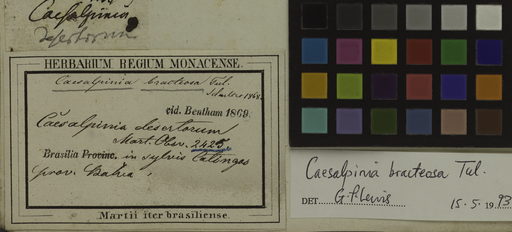 Caesalpinia
desertorum
HERBARIUM REGIUM MONACENSE.
Caesalpinia bracteosa Tul.
1868.
vid. Bentham 1869.
Caesalpinia desertorum
Mart. Obs. 2425
Brasilia Provinc. in sylvis Catingas
prov. Bahia
Martii iter brasiliense.
Caesalpinia bracteosa Tul.
DET. G.P. Lewis 15.5.1993